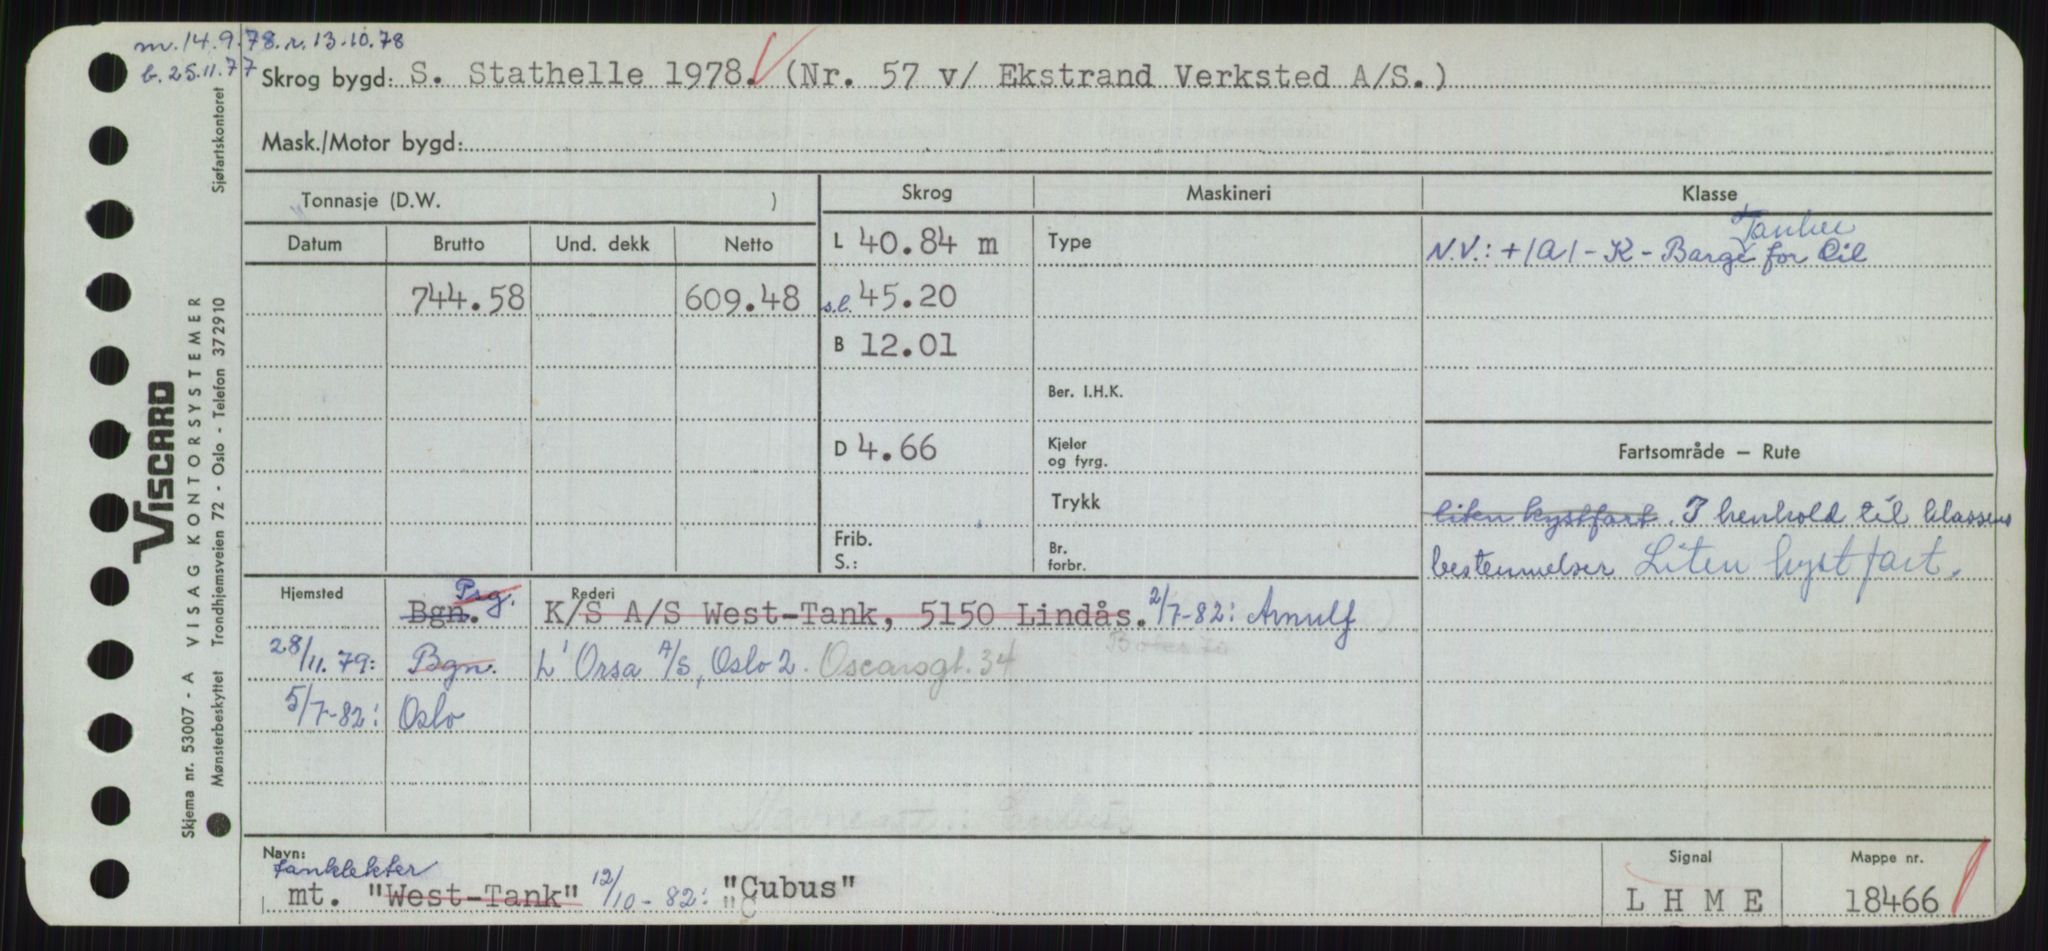 m. 14.9.78. r. 13.10.78
b. 25.11.77
Skrog bygd: S. Stathelle 1978. (Nr. 57 v/ Ekstrand Verksted A/S.)
Mask./Motor bygd:
Tonnasje (D.W. )
Skrog
Maskineri
Klasse
Datum Brutto Und. dekk Netto
L 40.84 m
Type
Tanker
N.V.: +1A1 - K - Barge for Oil
744.58 609.48
s.l. 45.20
B 12.01
Ber. I.H.K.
D 4.66
Kjeler
og fyrg.
Fartsområde — Rute
Trykk
liten kystfart. I henhold til klassens
Frib.
S.:
Br.
forbr.
bestemmelser Liten kystfart.
Hjemsted
Rederi
Psg.
Bgn. K/S A/S West-Tank, 5150 Lindås. 2/7-82: Arnulf
28/11.79: Bgn. L'Orsa A/S, Oslo 2. Oscarsgt. 34
5/7-82: Oslo
Cubus
Navn:
tanklekter
mt. "West-Tank" 12/10-82: "Cubus"
"C
Signal
L H M E
Mappe nr.
18466
Sjøfartskontoret
VISCARD
VISAG KONTORSYSTEMER
Skjema nr. 53007 - A
Mønsterbeskyttet Trondhjemsveien 72 - Oslo - Telefon 372910